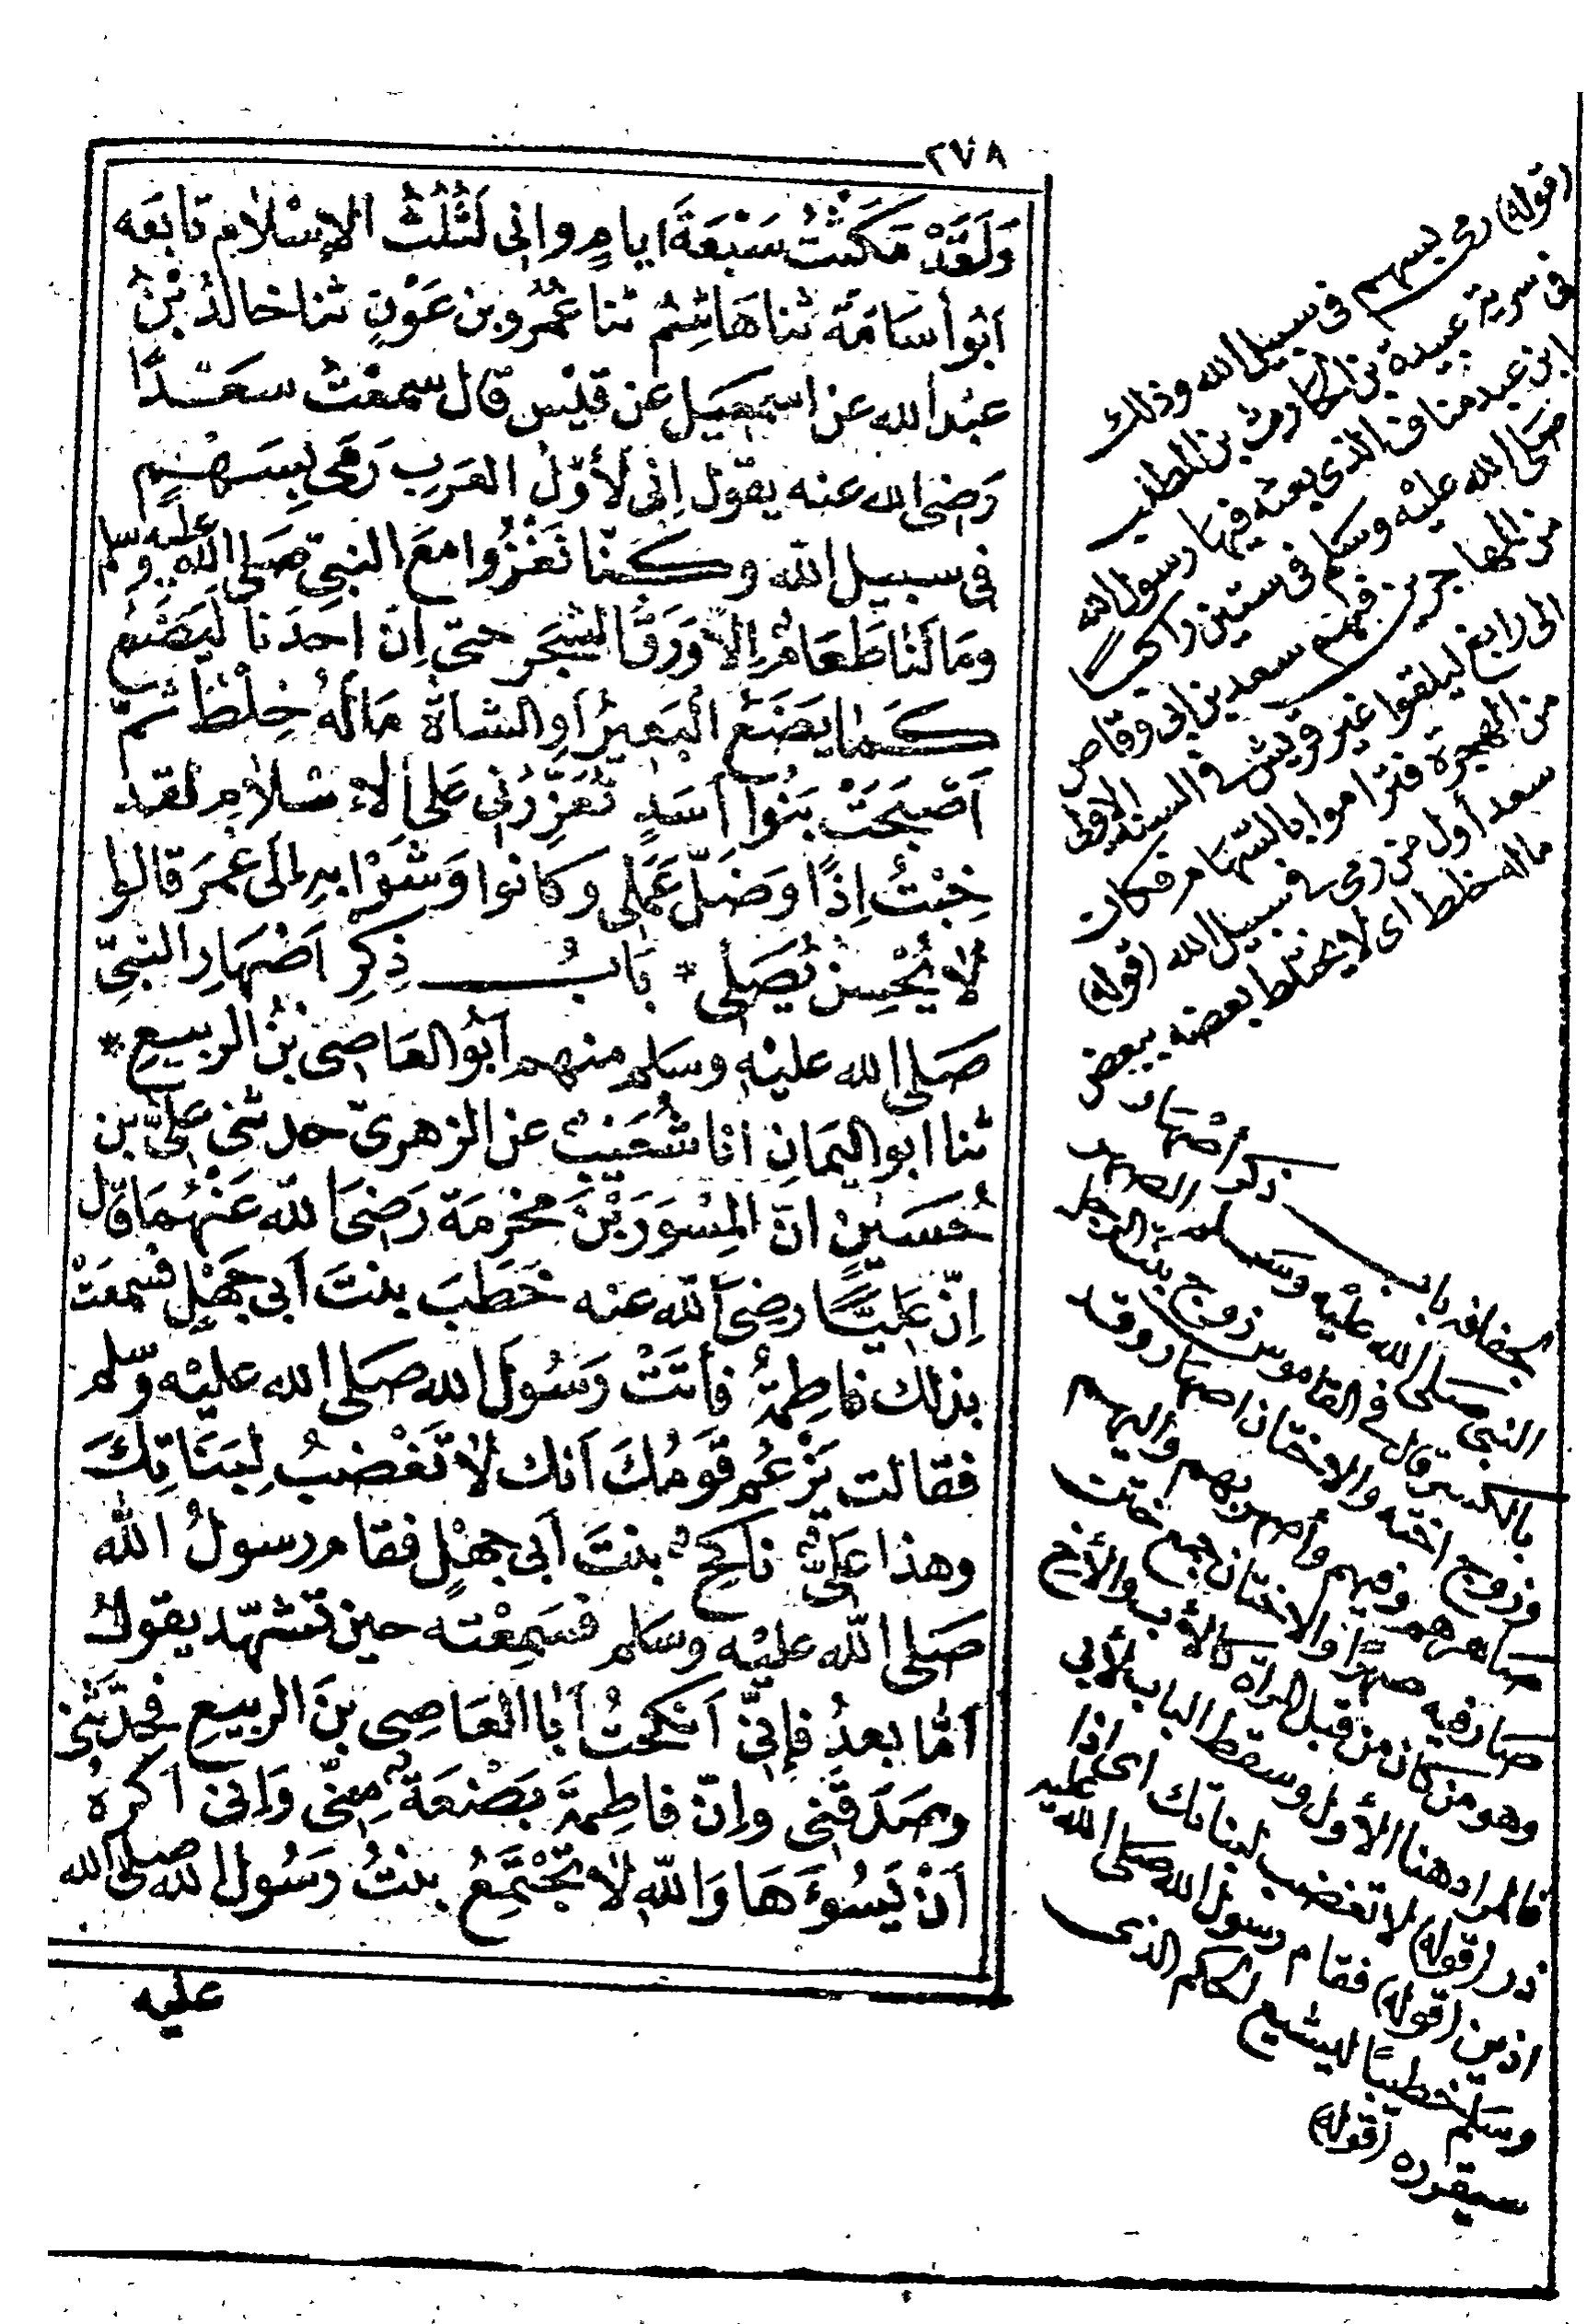 ٢٧٨
وَلَقَدْ مَكَثْتُ سَبْعَةَ ايامٍ وانى لَثُلُثُ الإسْلَامِ تابَعَه
اَبُو أُسَامَةَ ثنا هَاشِمُ ثنا عَمْرُو بن عَوْنٍ ثنا خالدُ بْنُ
عبْد الله عن اسمعيل عن قيْس قال سمعْتُ سعَدًا
رَضى الله عنه يقول إنى لأوّلُ العَرَبِ رَمَى بِسَهْمٍ
فى سبيل الله وكنّا نَغْزُوا معَ النبىّ صَلى الله عليه وسلم
ومَا لَنَا طَعَامٌ إلاّ وَرَقُ الشجَر حتى إنّ احدَنا لَيَضَعُ
كما يَضَعُ البَعِيرُ أوِ الشاةُ مَا لَهُ خِلْطٌ ثمّ
أَصْبَحَتْ بَنُوا أسَدٍ تُعَزِّرُنى عَلى الإسْلامِ لقد
خِبْتُ إذًا وَضَلّ عَمَلى وكانوا وَشَوْا به إلَى عُمَرَ قالوا
لا يُحْسِنُ يُصَلى * بَابُ ذِكرِ اَصْهَارِ النبىّ
صَلى الله عليْه وسَلم منهم اَبُو العَاصِى بْنُ الربيعِ *
ثنا ابو اليَمَانِ انا شُعَيْبٌ عن الزهرىّ حدثنى عَلىّ بن
حُسَيْنٍ انّ المِسْوَرَ بْنَ مَخْرَمَة رَضىَ الله عَنْهُمَا قال
إنّ عَليًّا رضىَ الله عنه خَطَبَ بنتَ اَبى جَهْلٍ فسمعَتْ
بذلك فاطِمَةُ فأتَتْ رَسُولَ الله صَلى الله عليْه وسلم
فقالت يَزْعُم قَومُكَ اَنك لَا تَغْضبُ لِبَنَاتِكَ
وهذا عَلىٌّ ناكحٌ بنتَ اَبى جهْلٍ فقام رسولُ الله
صَلى الله عليْه وسَلم فسَمِعْته حين تشهّد يقول
اَمّا بعدُ فإنىّ اَنكحتُ أبَا العَاصِى بنَ الربيع فحدّثنى
وصَدَقَنى وإنّ فاطِمةَ بَضْعَةٌ مِنّى وَإنى اكرهُ
اَنْ يَسُوءَهَا وَاللهِ لَا تَجْتَمِعُ بنْتُ رَسُول الله صلى الله
عليه
(قوله) رمى بسهم فى سبيل الله وذلك
فى سرية عبيدة بن الحارث بن المطلب
ابن عبد مناف الذى بعثه فيها رسول الله
صَلى الله عليْه وسلم فى ستين راكبًا
من المهاجرين فيهم سعد بن ابى وقاص
الى رابغ ليلقوا عير قريش فى السنة الاولى
من الهجرة فتراموا بالسّهام فكان
سعد أول من رمى فى سبيل الله (قوله)
ماله خلط اى لا يختلط بعضه ببعض
لجفافه باب ذكر أصْهار
النبى صَلى الله عليْه وسَلم الصهر
بالكسر قال فى القاموس زوج بنت الرجل
وزوج اخته والاختان اصهار وقد
صاهرهم وفيهم وأصهر بهم واليهم
صار فيه صهرًا والاختان جمع ختن
وهو من كان من قبل المرأة كالأب والأخ
فالمراد هنا الأول وسقط الباب لأبى
ذر (قوله) لا تغضب لبناتك اى اذا
اذين (قوله) فقام رسول الله صلى الله عليه
وسَلم خطيبًا ليشيع الحكم الذى
سيقرره (قوله)